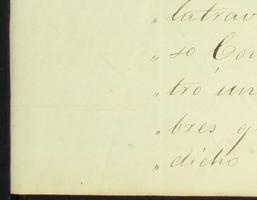 „ latrav
„ so Con
„ tró un
„ bres q
„ dicho